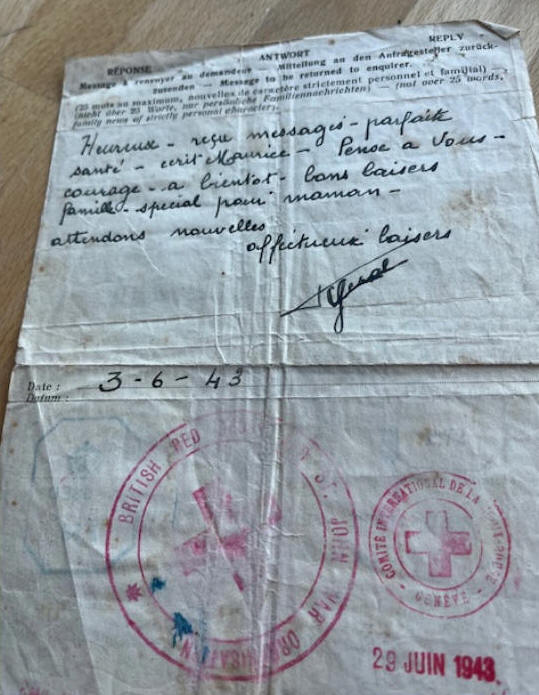 RÉPONSE ANTWORT REPLY
Message à renvoyer au demandeur — Mitteilung an den Anfragesteller zurück-
zusenden — Message to be returned to enquirer.
(25 mots au maximum, nouvelles de caractère strictement personnel et familial) —
(nicht über 25 Worte, nur persönliche Familiennachrichten) — (not over 25 words,
family news of strictly personal character).
Heureux - reçu messages - parfaite
santé - ecrit Maurice - Pense a vous -
courage - a bientot - bons baisers
famille - special pour maman -
attendons nouvelles
affectueux baisers
Date : 3-6-43
Datum :
BRITISH RED ST. JOHN WAR ORGANISATION
COMITÉ INTERNATIONAL DE LA CROIX-ROUGE
GENÈVE
29 JUIN 1943